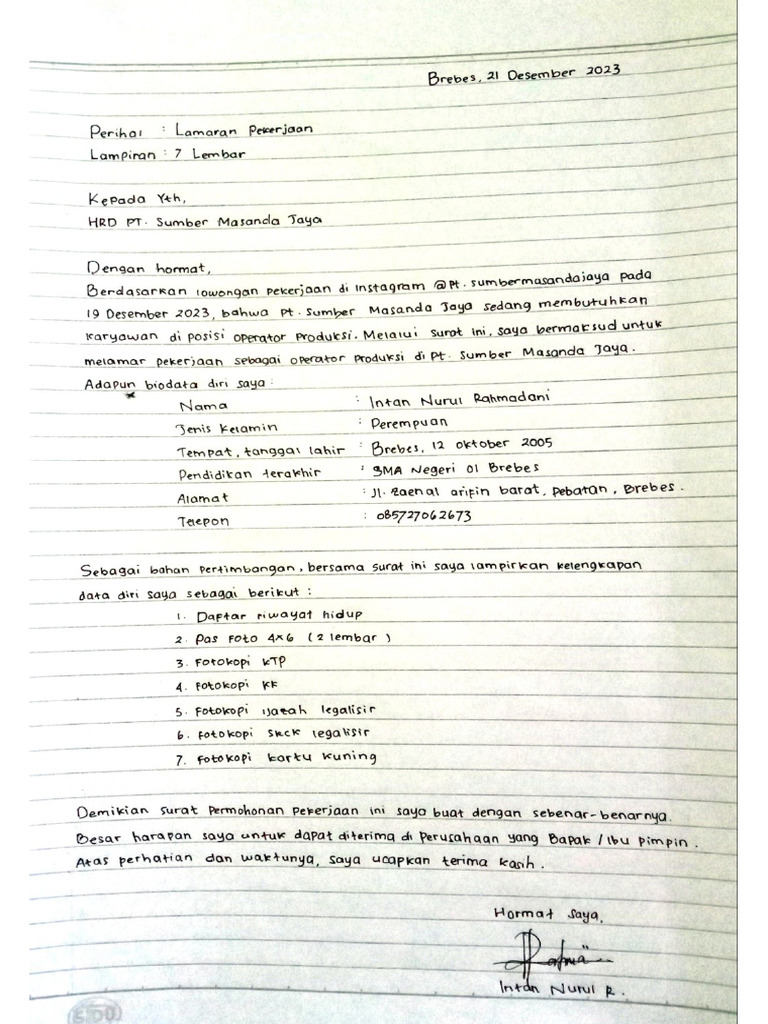 Brebes, 21 Desember 2023
Perihal : Lamaran Pekerjaan
Lampiran : 7 Lembar
Kepada Yth,
HRD PT. Sumber Masanda Jaya
Dengan hormat,
Berdasarkan lowongan pekerjaan di Instagram @pt.sumbermasandajaya pada
19 Desember 2023, bahwa pt. Sumber Masanda Jaya sedang membutuhkan
karyawan di posisi operator produksi. Melalui surat ini, saya bermaksud untuk
melamar pekerjaan sebagai operator produksi di pt. Sumber Masanda Jaya.
Adapun biodata diri saya :
Nama : Intan Nurul Rahmadani
Jenis Kelamin : Perempuan
Tempat, tanggal lahir : Brebes, 12 oktober 2005
Pendidikan terakhir : SMA Negeri 01 Brebes
Alamat : Jl. Zaenal arifin barat, pebatan, Brebes.
Telepon : 085727062673
Sebagai bahan pertimbangan, bersama surat ini saya lampirkan kelengkapan
data diri saya sebagai berikut :
1. Daftar riwayat hidup
2. Pas Foto 4x6 (2 lembar)
3. Fotokopi KTP
4. Fotokopi KK
5. Fotokopi ijazah legalisir
6. Fotokopi skck legalisir
7. Fotokopi kartu kuning
Demikian surat permohonan pekerjaan ini saya buat dengan sebenar-benarnya.
Besar harapan saya untuk dapat diterima di perusahaan yang Bapak / Ibu pimpin.
Atas perhatian dan waktunya, saya ucapkan terima kasih.
Hormat saya,
Intan Nurul R.
SIDU